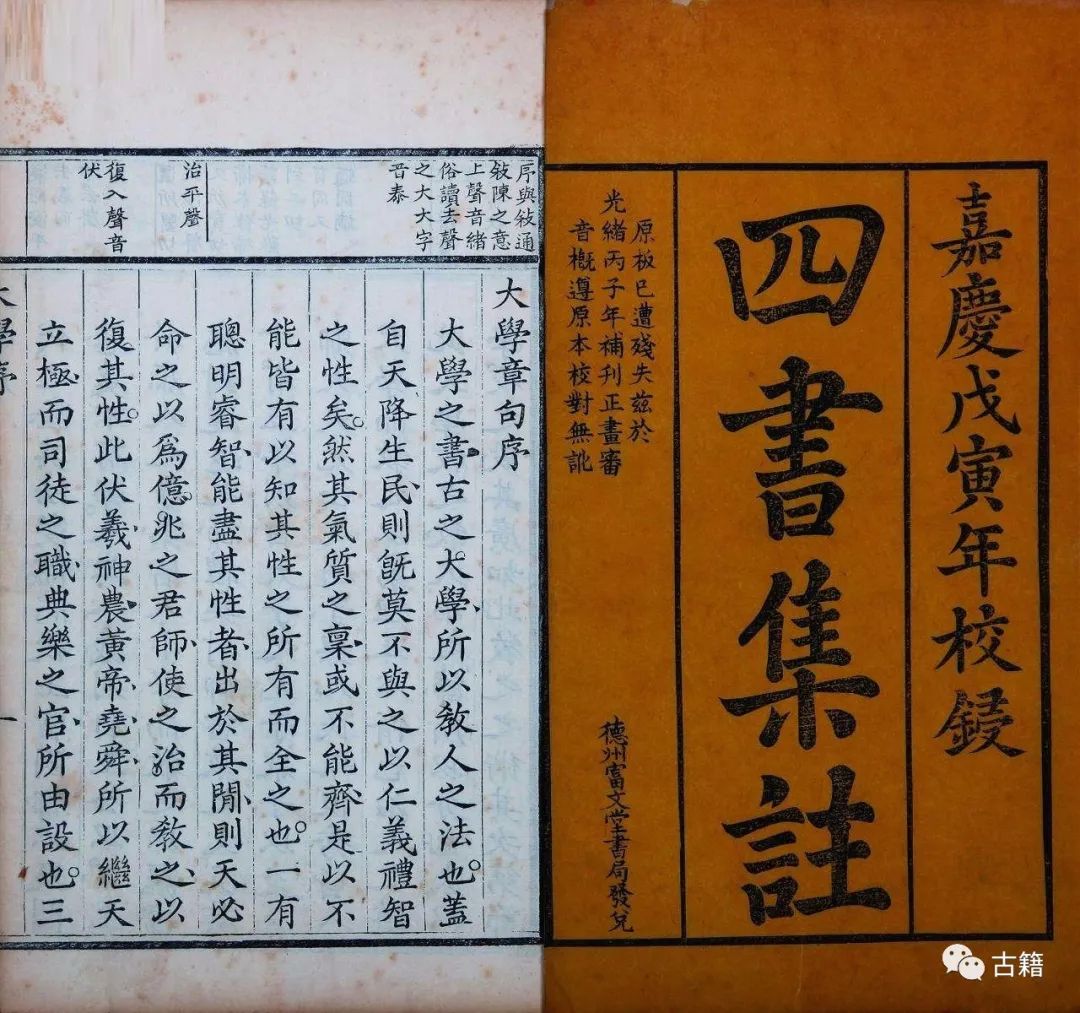 嘉慶戊寅年校鋟
四書集註
原板已遭殘失茲於
光緒丙子年補刊正畫審
音概遵原本校對無訛
德州富文堂書局發兌
序與敍通
敍陳之意
上聲音緒
俗讀去聲
之大大字
音泰
治平聲
復入聲音
伏
大學章句序
大學之書古之大學所以敎人之法也。蓋
自天降生民則旣莫不與之以仁義禮智
之性矣。然其氣質之稟或不能齊是以不
能皆有以知其性之所有而全之也。一有
聰明睿智能盡其性者出於其閒則天必
命之以爲億兆之君師使之治而敎之以
復其性。此伏羲神農黃帝堯舜所以繼天
立極而司徒之職典樂之官所由設也。三
大學序
一
古籍